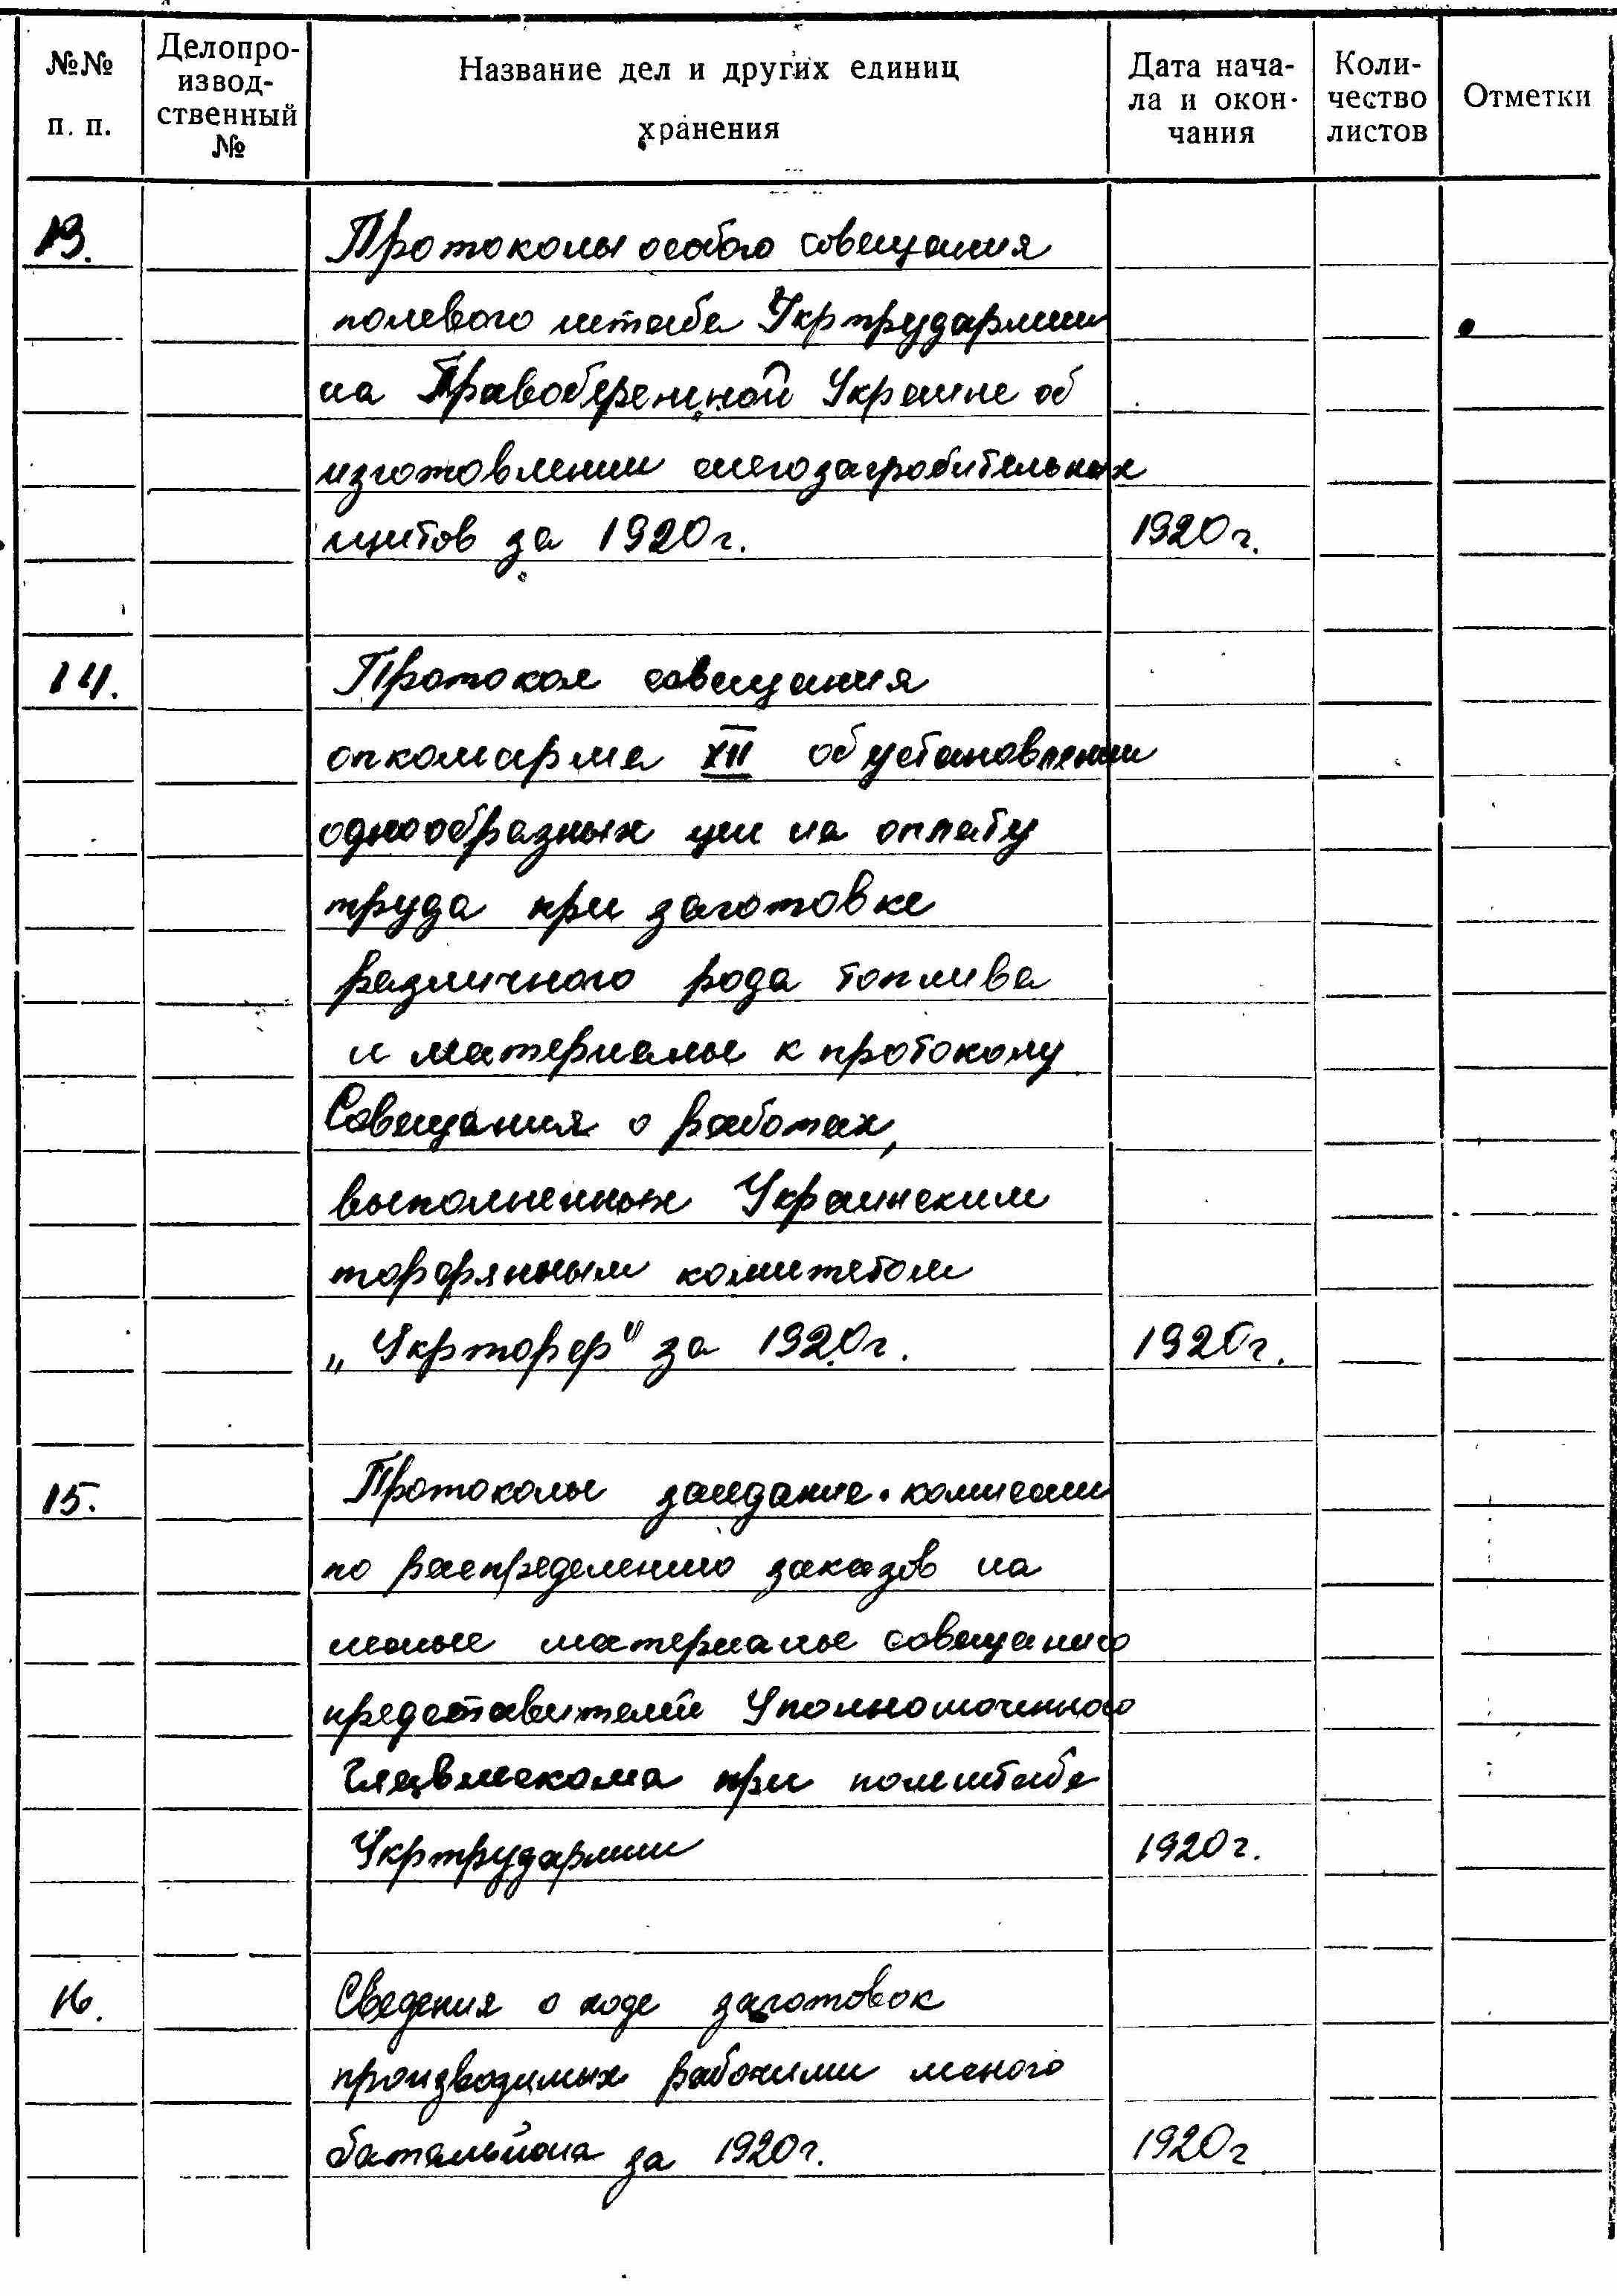 №№ п. п.
Делопро-
извод-
ственный
№
Название дел и других единиц
хранения
Дата нача-
ла и окон-
чания
Коли-
чество
листов
Отметки
13.
Протоколы особого совещания
полевого штаба Укртрудармии
на Правобережной Украине об
изготовлении снегозагробительных
щитов за 1920г. 1920г.
14.
Протокол совещания
опкомарма XII об установлении
однообразных цен на оплату
труда при заготовке
различного рода топлива
и материалы к протоколу
Совещания о работах,
выполненных Украинским
торфяным комитетом
„Укрторф" за 1920г. 1920г.
15.
Протоколы заседание комиссии
по распределению заказов на
лесные материалы совещанию
представителей Уполномоченного
при полештабе
Укртрудармии 1920г.
16.
Сведения о ходе заготовок
производимых рабочими лесного
батальйона за 1920г. 1920г